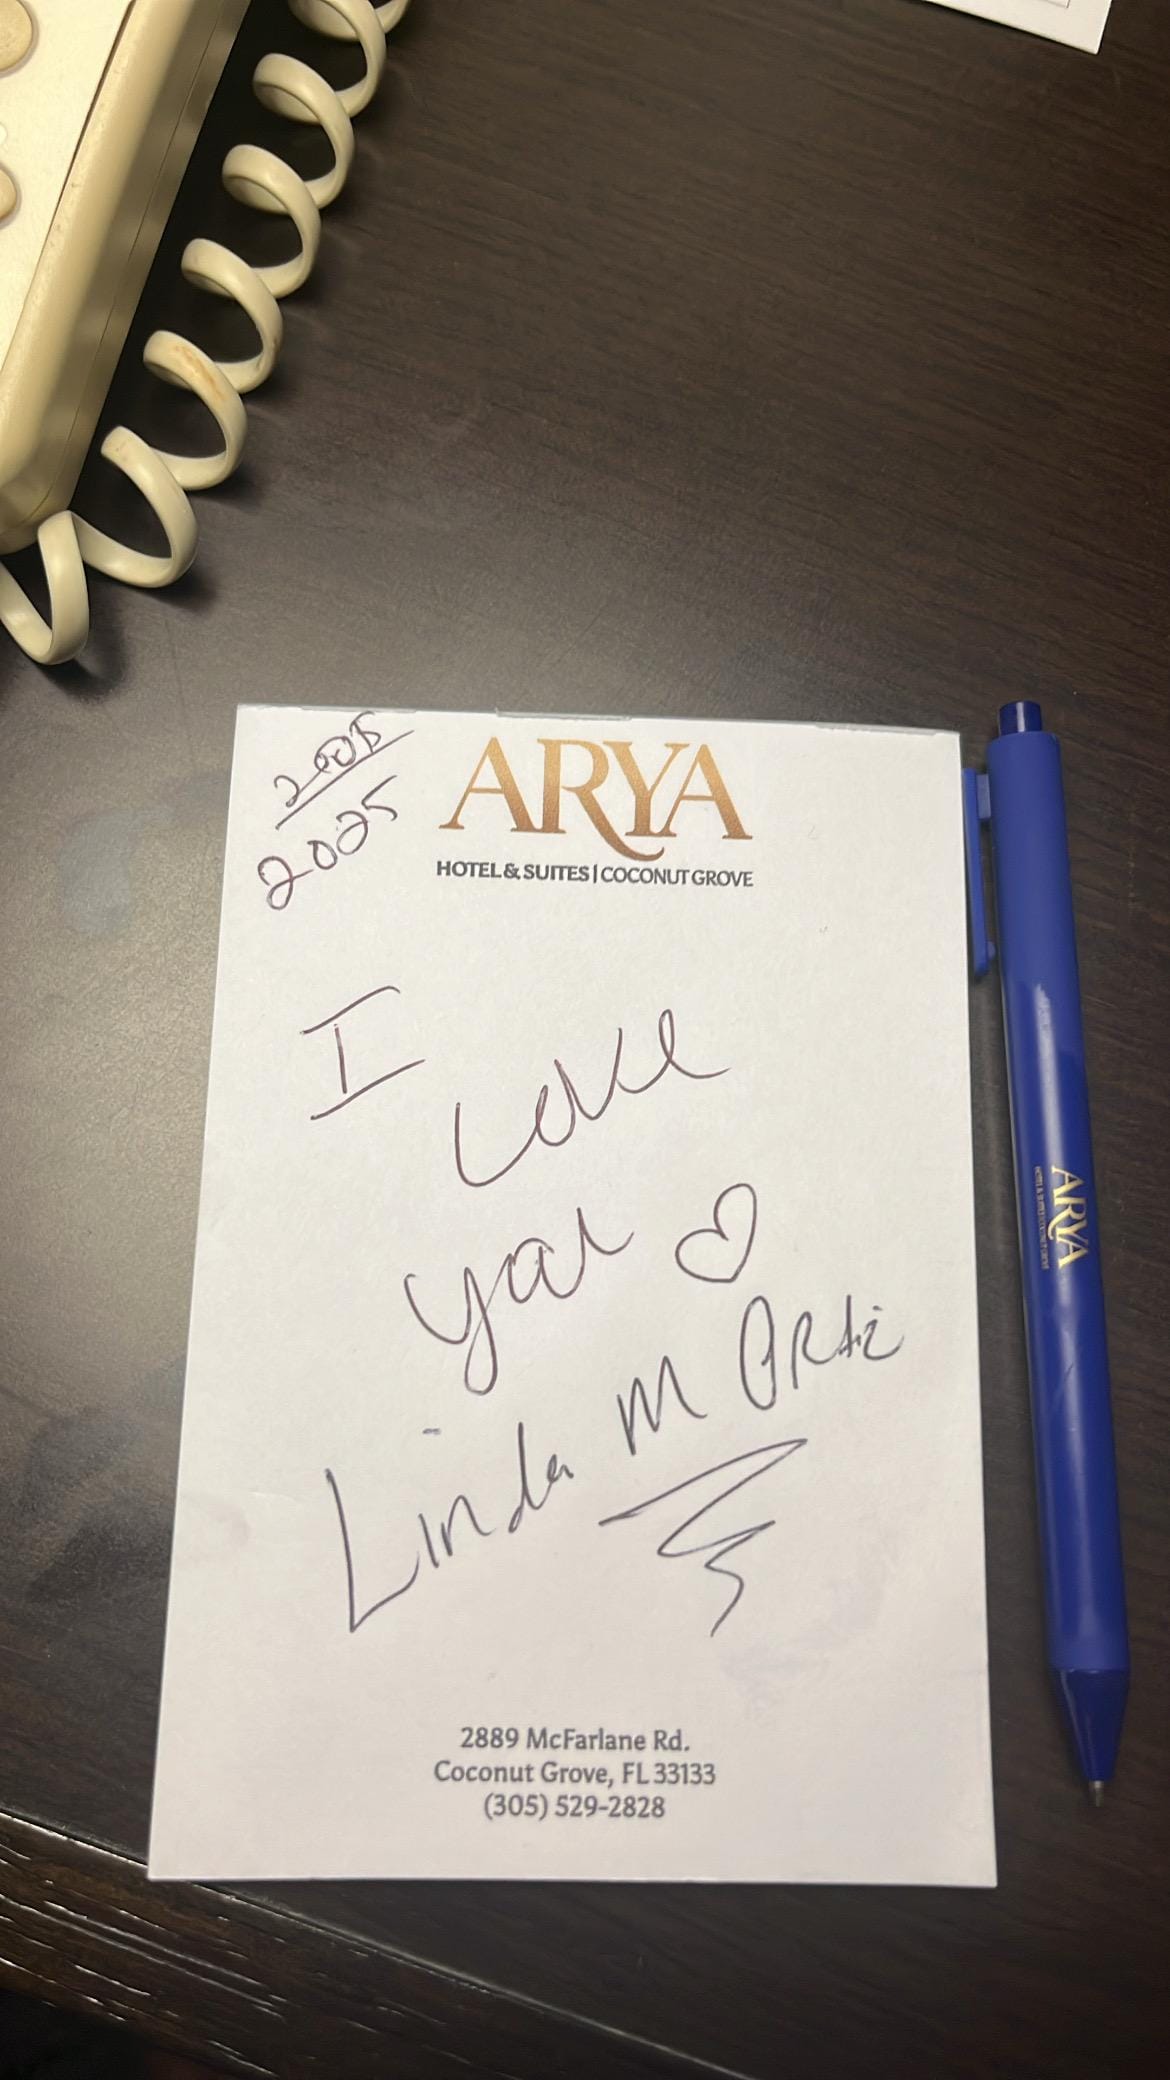 2005
2025
ARYA
HOTEL & SUITES | COCONUT GROVE
I
Love
you
Linda M Ortiz
2889 McFarlane Rd.
Coconut Grove, FL 33133
(305) 529-2828
ARYA